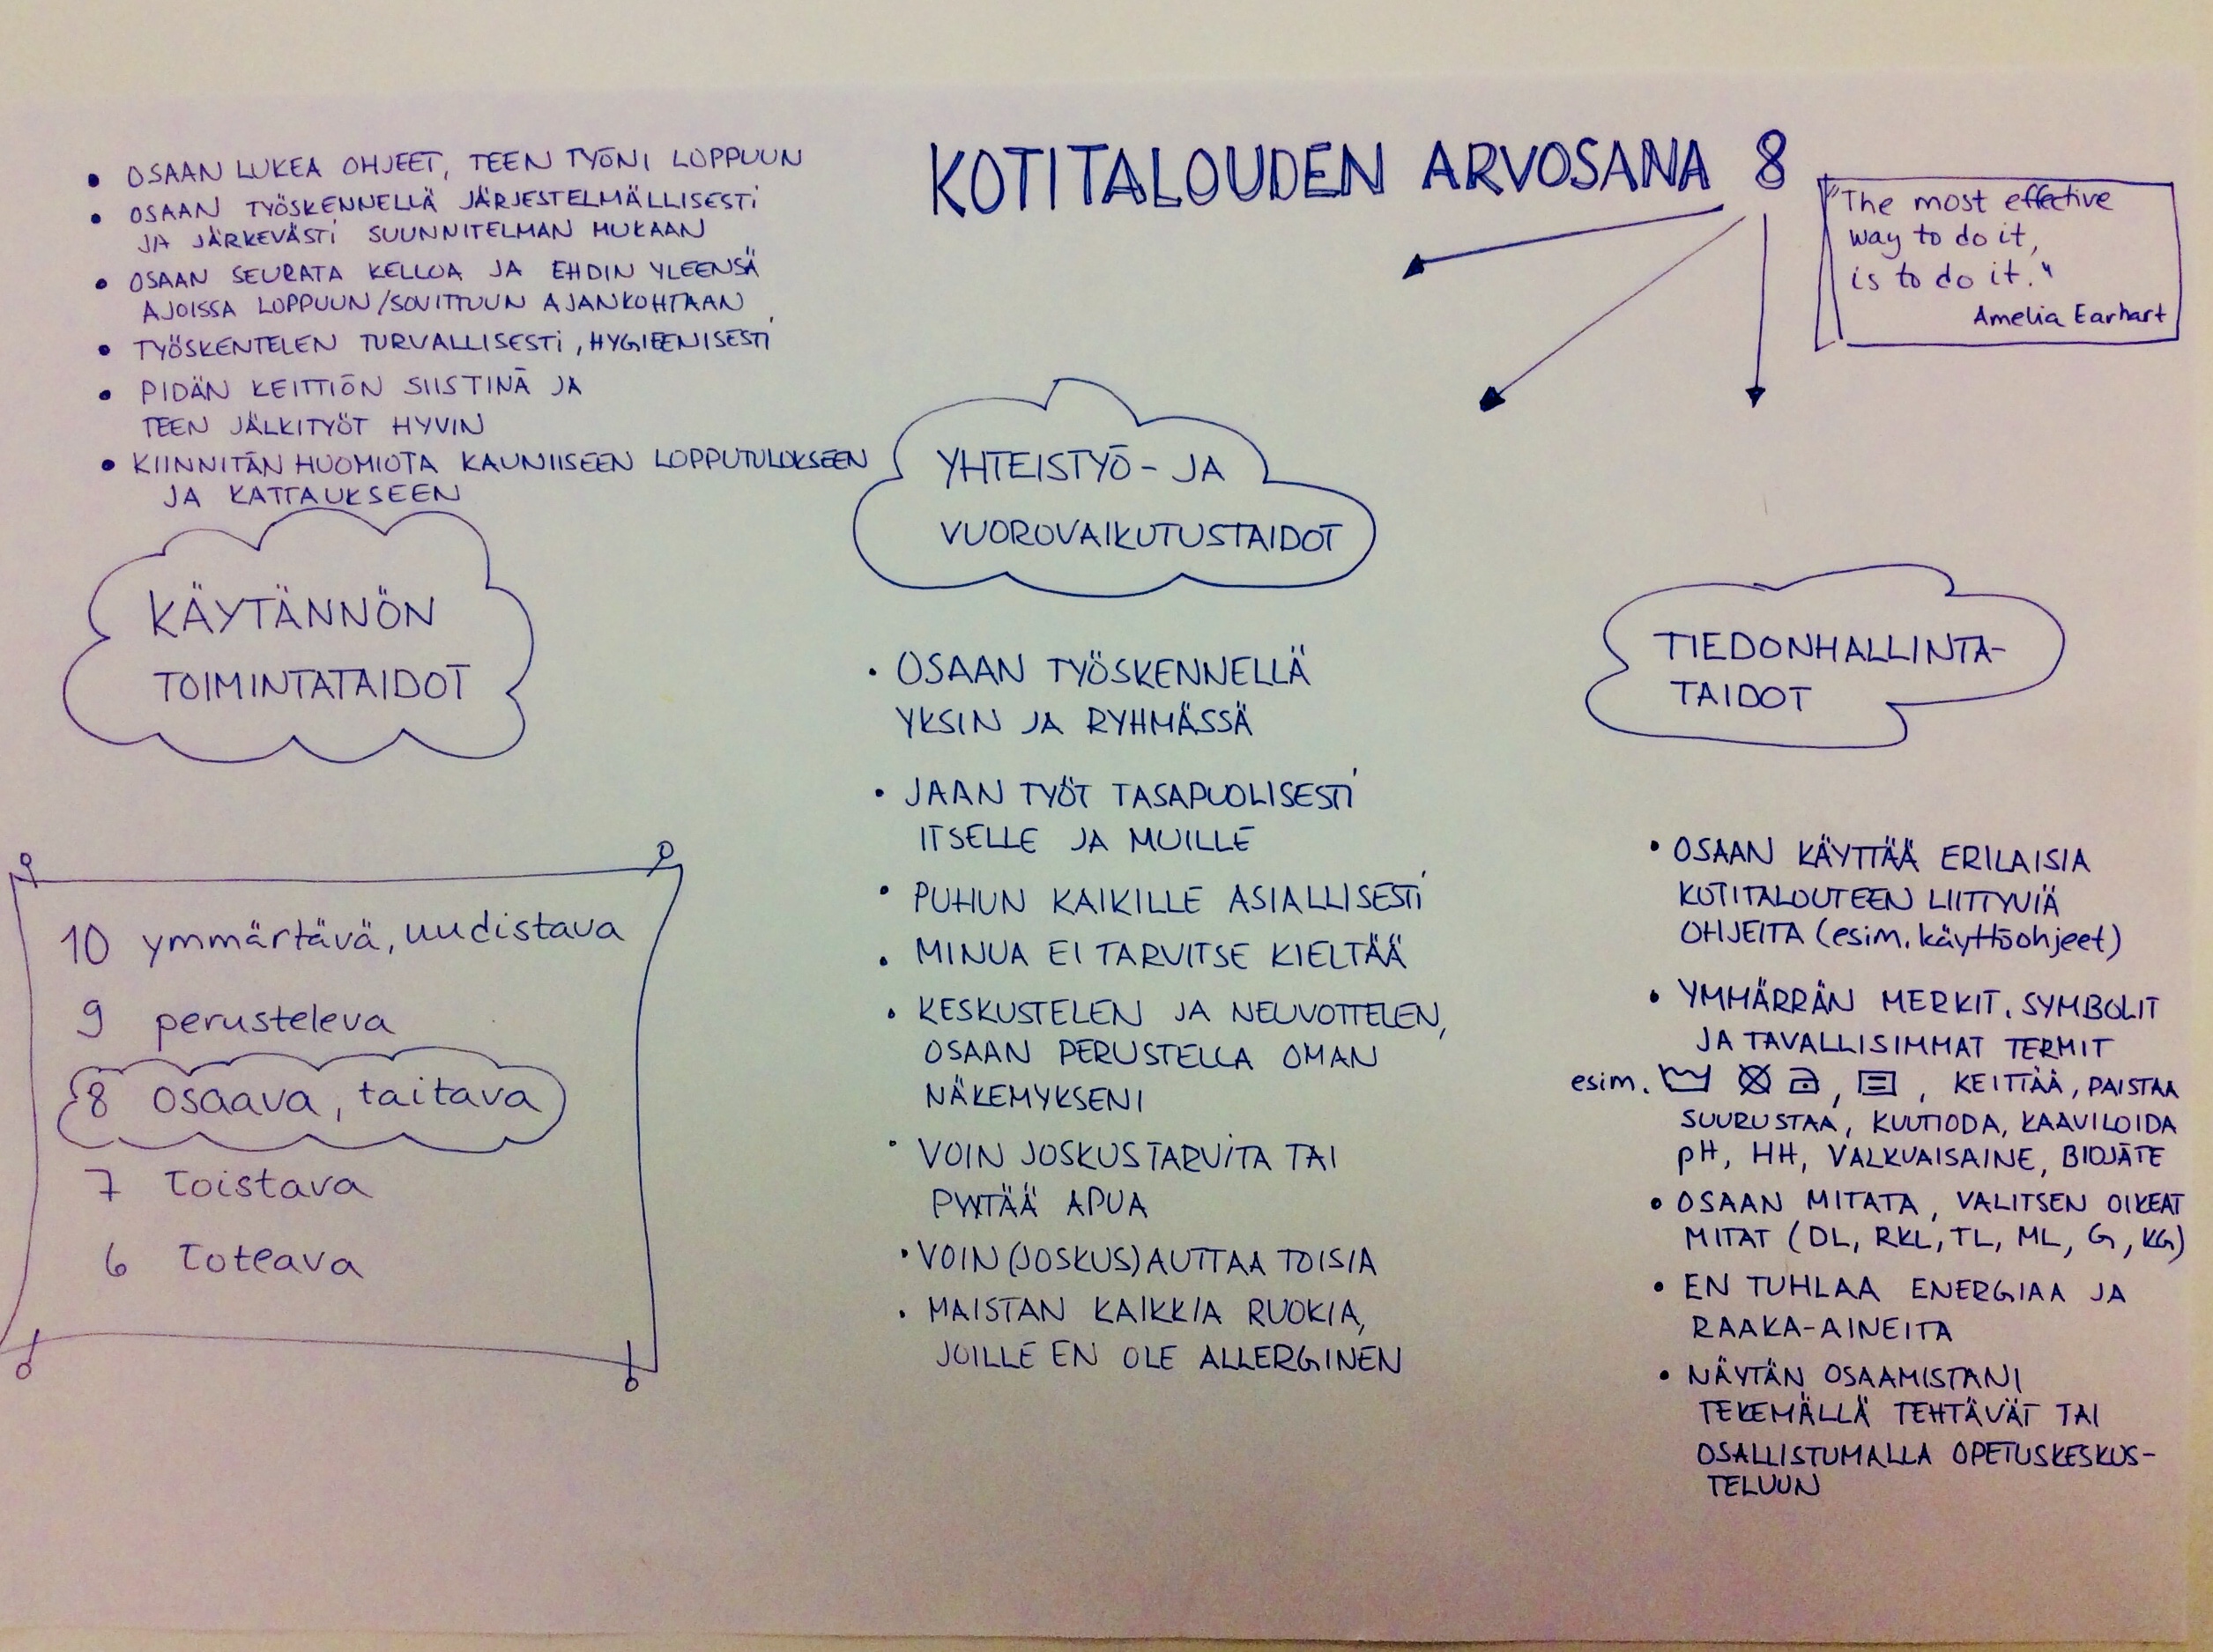 KOTITALOUDEN ARVOSANA 8
"The most effective
way to do it,
is to do it."
Amelia Earhart
• OSAAN LUKEA OHJEET, TEEN TYÖNI LOPPUUN
• OSAAN TYÖSKENNELLÄ JÄRJESTELMÄLLISESTI
JA JÄRKEVÄSTI SUUNNITELMAN MUKAAN
• OSAAN SEURATA KELLOA JA EHDIN YLEENSÄ
AJOISSA LOPPUUN/SOVITTUUN AJANKOHTAAN
• TYÖSKENTELEN TURVALLISESTI, HYGIEENISESTI
• PIDÄN KEITTIÖN SIISTINÄ JA
TEEN JÄLKITYÖT HYVIN
• KIINNITÄN HUOMIOTA KAUNIISEEN LOPPUTULOKSEEN
JA KATTAUKSEEN
KÄYTÄNNÖN
TOIMINTATAIDOT
10 ymmärtävä, uudistava
9 perusteleva
8 osaava, taitava
7 toistava
6 toteava
YHTEISTYÖ- JA
VUOROVAIKUTUSTAIDOT
• OSAAN TYÖSKENNELLÄ
YKSIN JA RYHMÄSSÄ
• JAAN TYÖT TASAPUOLISESTI
ITSELLE JA MUILLE
• PUHUN KAIKILLE ASIALLISESTI
• MINUA EI TARVITSE KIELTÄÄ
• KESKUSTELEN JA NEUVOTTELEN,
OSAAN PERUSTELLA OMAN
NÄKEMYKSENI
• VOIN JOSKUS TARVITA TAI
PYYTÄÄ APUA
• VOIN (JOSKUS) AUTTAA TOISIA
• MAISTAN KAIKKIA RUOKIA,
JOILLE EN OLE ALLERGINEN
TIEDONHALLINTA-
TAIDOT
• OSAAN KÄYTTÄÄ ERILAISIA
KOTITALOUTEEN LIITTYVIÄ
OHJEITA (esim. käyttöohjeet)
• YMMÄRRÄN MERKIT, SYMBOLIT
JA TAVALLISIMMAT TERMIT
esim. , , KEITTÄÄ, PAISTAA
SUURUSTAA, KUUTIODA, KAAVILOIDA
pH, HH, VALKUAISAINE, BIOJÄTE
• OSAAN MITATA, VALITSEN OIKEAT
MITAT (DL, RKL, TL, ML, G, KG)
• EN TUHLAA ENERGIAA JA
RAAKA-AINEITA
• NÄYTÄN OSAAMISTANI
TEKEMÄLLÄ TEHTÄVÄT TAI
OSALLISTUMALLA OPETUSKESKUS-
TELUUN